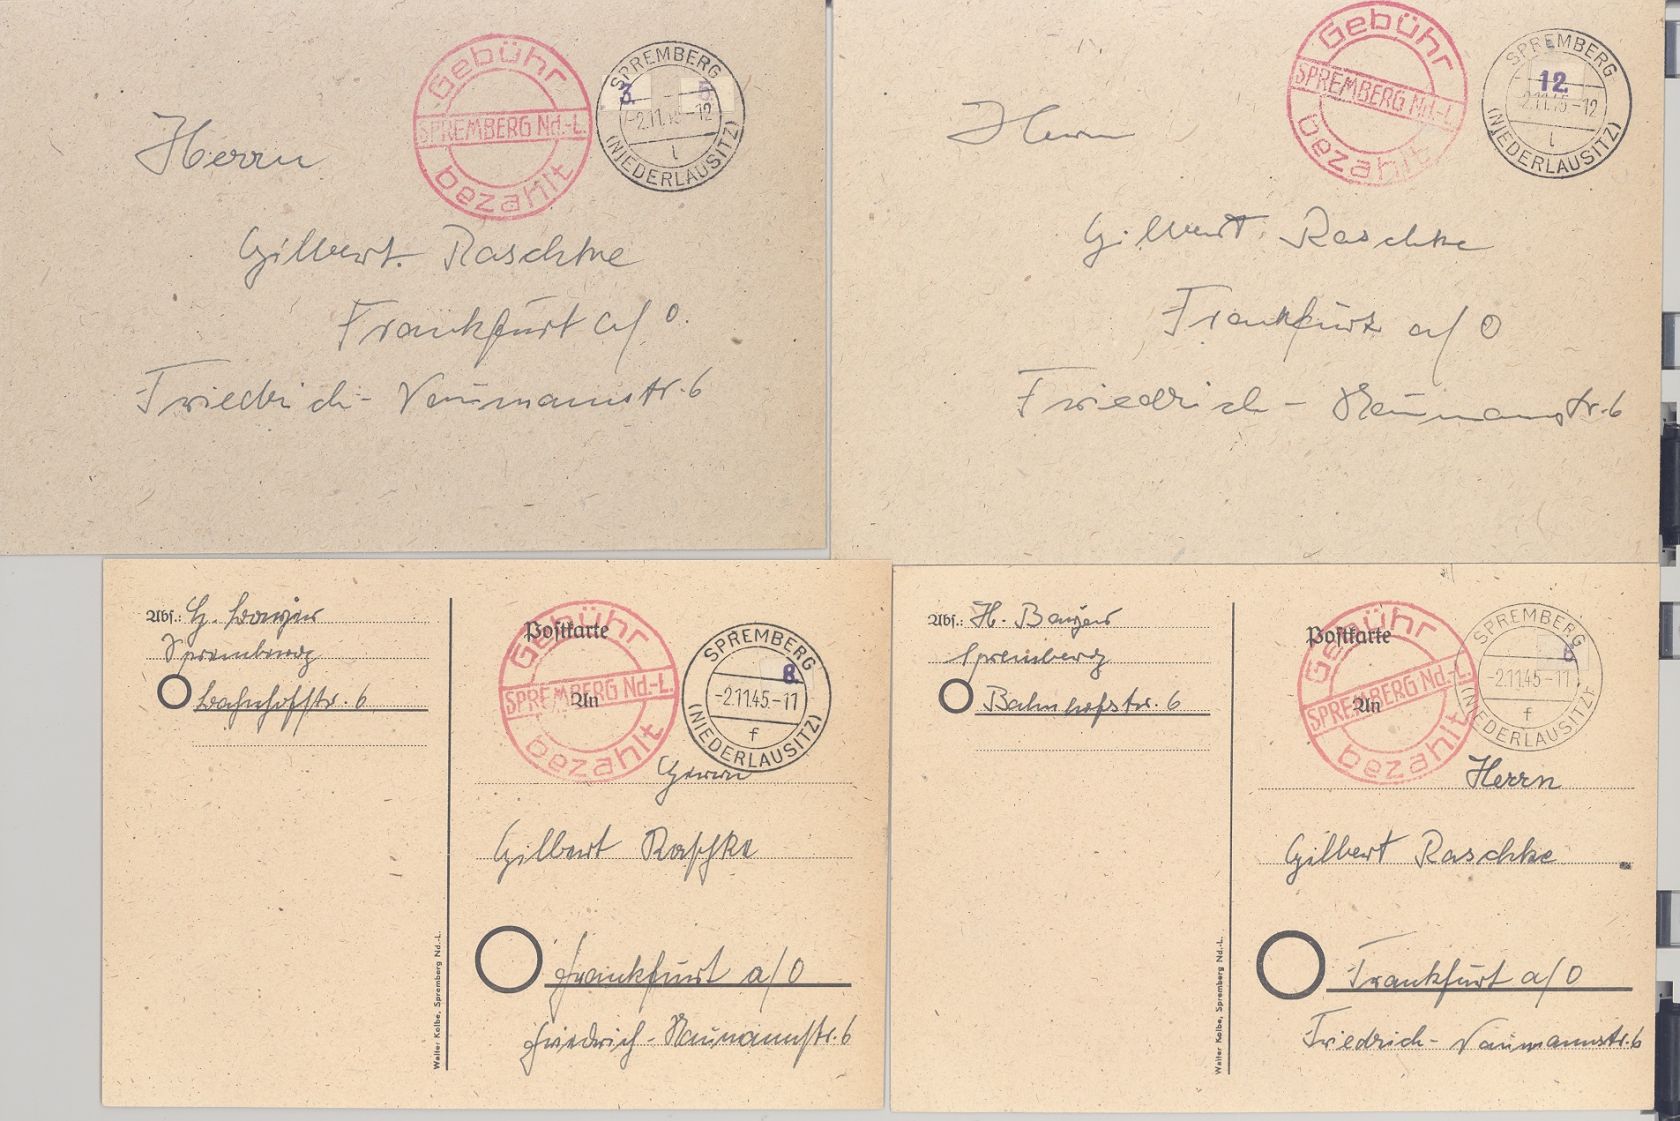 Gebühr
SPREMBERG Nd.-L.
bezahlt
SPREMBERG
3. 5.
-2.11.45-12
l
(NIEDERLAUSITZ)
Herrn
Gilbert Raschke
Frankfurt a/O.
Friedrich-Naumannstr. 6
Gebühr
SPREMBERG Nd.-L.
bezahlt
SPREMBERG
12.
-2.11.45-12
l
(NIEDERLAUSITZ)
Herrn
Gilbert Raschke
Frankfurt a/O
Friedrich-Naumannstr. 6
Abs.: H. Bayer
Spremberg
Bahnhofstr. 6
Walter Kolbe, Spremberg Nd.-L.
Postkarte
An
Gebühr
SPREMBERG Nd.-L.
bezahlt
SPREMBERG
8.
-2.11.45-11
f
(NIEDERLAUSITZ)
Herrn
Gilbert Raschke
Frankfurt a/O
Friedrich-Naumannstr. 6
Abs.: H. Bayer
Spremberg
Bahnhofstr. 6
Walter Kolbe, Spremberg Nd.-L.
Postkarte
An
Gebühr
SPREMBERG Nd.-L.
bezahlt
SPREMBERG
-2.11.45-11
f
(NIEDERLAUSITZ)
Herrn
Gilbert Raschke
Frankfurt a/O
Friedrich-Naumannstr. 6